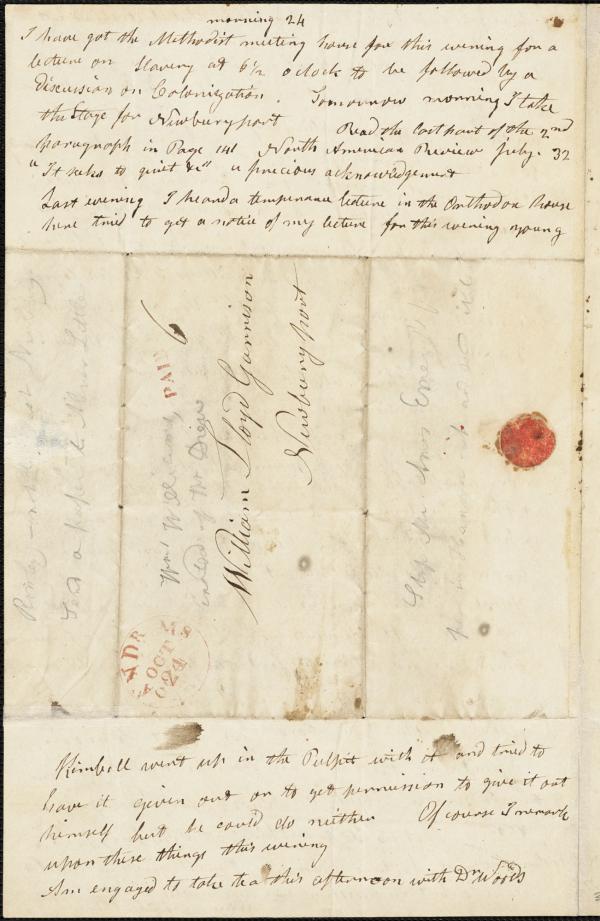 morning 24
I have got the Methodist meeting house for this evening for a
lecture on Slavery at 6 1/2 o clock to be followed by a
discussion on Colonization. Tomorrow morning I take
the Stage for Newburyport Read the last part of the 2nd
Paragraph in Page 141 North American Review July. 32
"It seeks to quiet &c" a precious acknowledgement
Last evening I heard a temperance lecture in the Orthodox house
here tried to get a notice of my lecture for this evening young
PAID
6
William Lloyd Garrison
Newburyport
Wm Williams
instead of Mr Drew
Send a paper to
Stop Mr Amos
OCT
24
Kimball went up in the Pulpit with it and tried to
have it given out or to get permission to give it out
himself but he could do neither Of course I remark
upon these things this evening
Am engaged to take tea this afternoon with Dr Woods